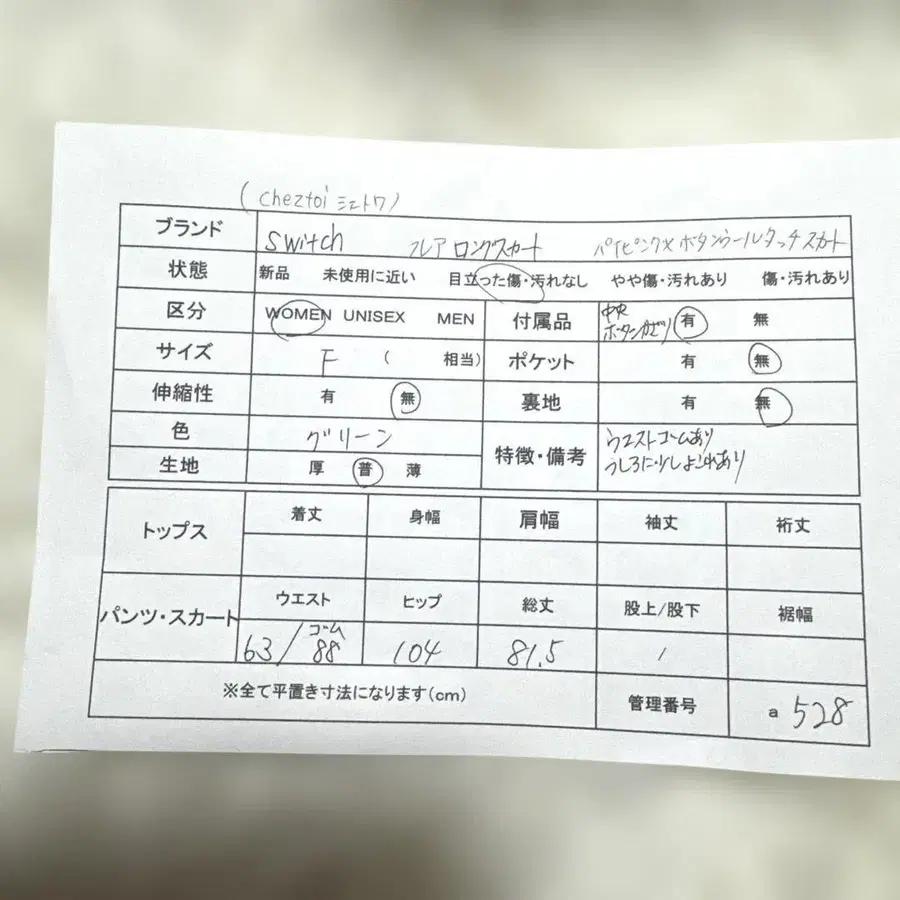 (cheztoi シェトワ)
ブランド switch フレア ロングスカート パイピング×ボタンウールタッチスカート
状態 新品 未使用に近い 目立った傷・汚れなし やや傷・汚れあり 傷・汚れあり
区分 WOMEN UNISEX MEN 付属品 中央ボタンかざり 有 無
サイズ F ( 相当) ポケット 有 無
伸縮性 有 無 裏地 有 無
色 グリーン 特徴・備考 ウエストゴムあり
うしろに少しよごれあり
生地 厚 普 薄
トップス 着丈 身幅 肩幅 袖丈 裄丈
パンツ・スカート ウエスト ヒップ 総丈 股上/股下 裾幅
63/ゴム88 104 81.5 /
※全て平置き寸法になります(cm) 管理番号 a 528